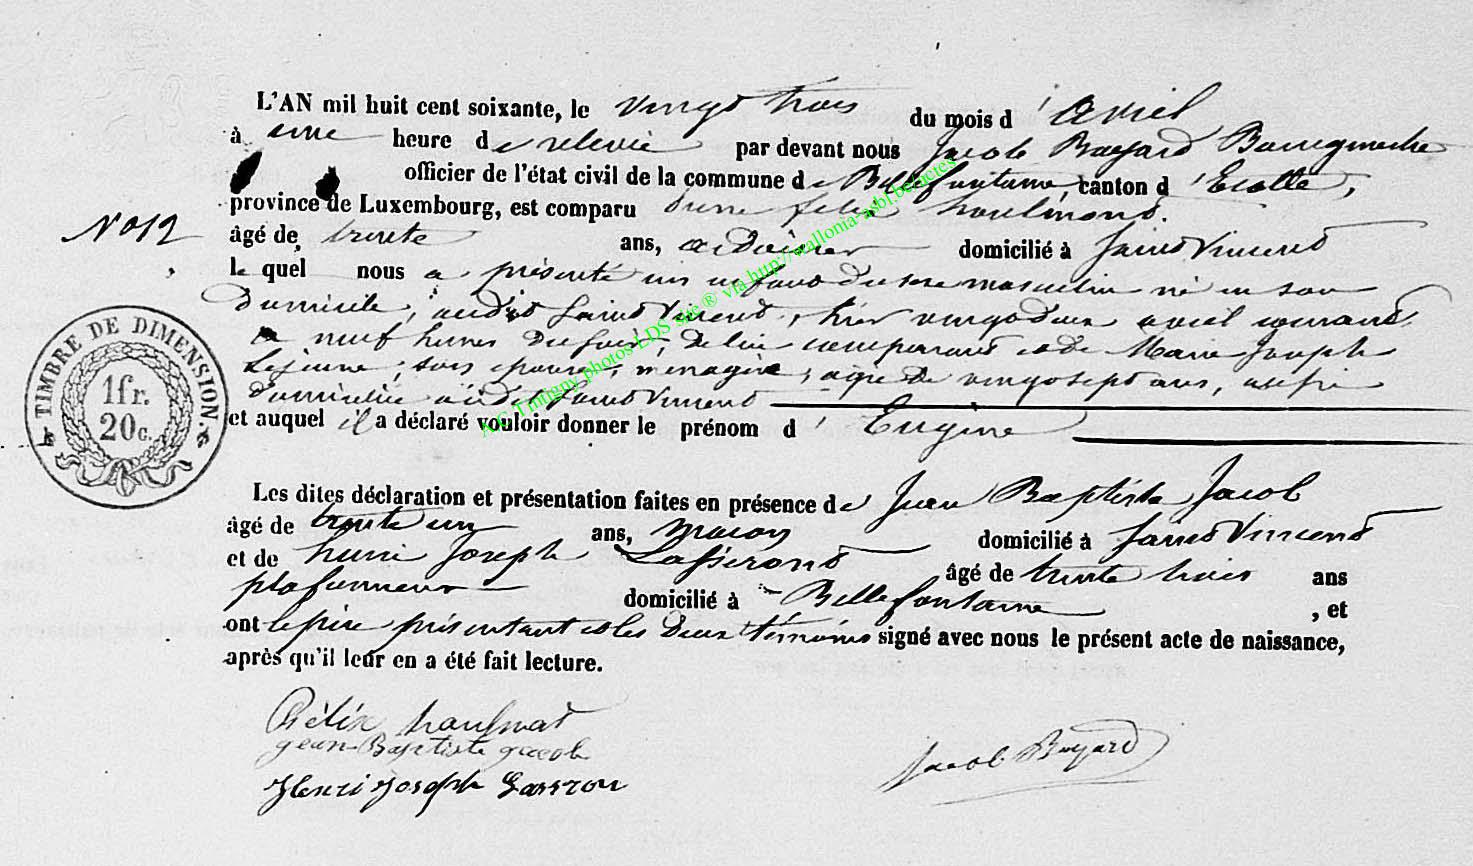 L'AN mil huit cent soixante, le vingt trois du mois d'avril
à une heure de relevée par devant nous Jacob Bayard Bourgmestre
officier de l'état civil de la commune de Bellefontaine canton d'Etalle,
province de Luxembourg, est comparu
N° 12
âgé de trente ans, ardoisier domicilié à Saint Vincent
le quel nous a présenté un enfant du sexe masculin né en son
domicile, audit Saint Vincent, hier vingt deux avril courant
à neuf heures du soir, de lui comparant et de Marie Joseph
Lejeune, son épouse, ménagère, agée de vingt sept ans, aussi
domiciliée audit Saint Vincent
et auquel il a déclaré vouloir donner le prénom d'Eugène
TIMBRE DE DIMENSION.
1fr.
20c.
Les dites déclaration et présentation faites en présence de Jean Baptiste Jacob
âgé de trente un ans, maçon domicilié à Saint Vincent
et de henri Joseph âgé de trente trois ans
plafonneur domicilié à Bellefontaine, et
ont le père présentant et les deux témoins signé avec nous le présent acte de naissance,
après qu'il leur en a été fait lecture.
Félix
Jean Baptiste Jacob
Henri Joseph Lassron
Jacob Bayard
A.C. Tintigny photos LDS site ® via http://wallonia-asbl.be/actes